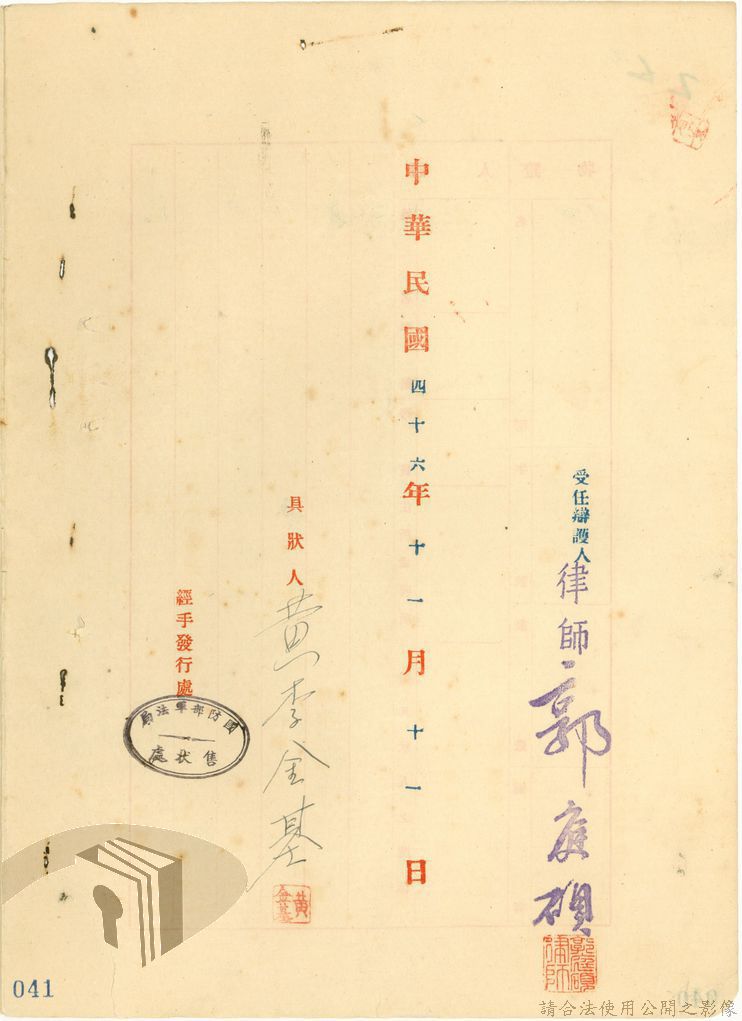 受任辯護人 律師 郭庭碩
郭庭碩律師
中華民國四十六年十一月十一日
具狀人 黃李金基
黃金基
經手發行處
國防部軍法局
售狀處
041
請合法使用公開之影像